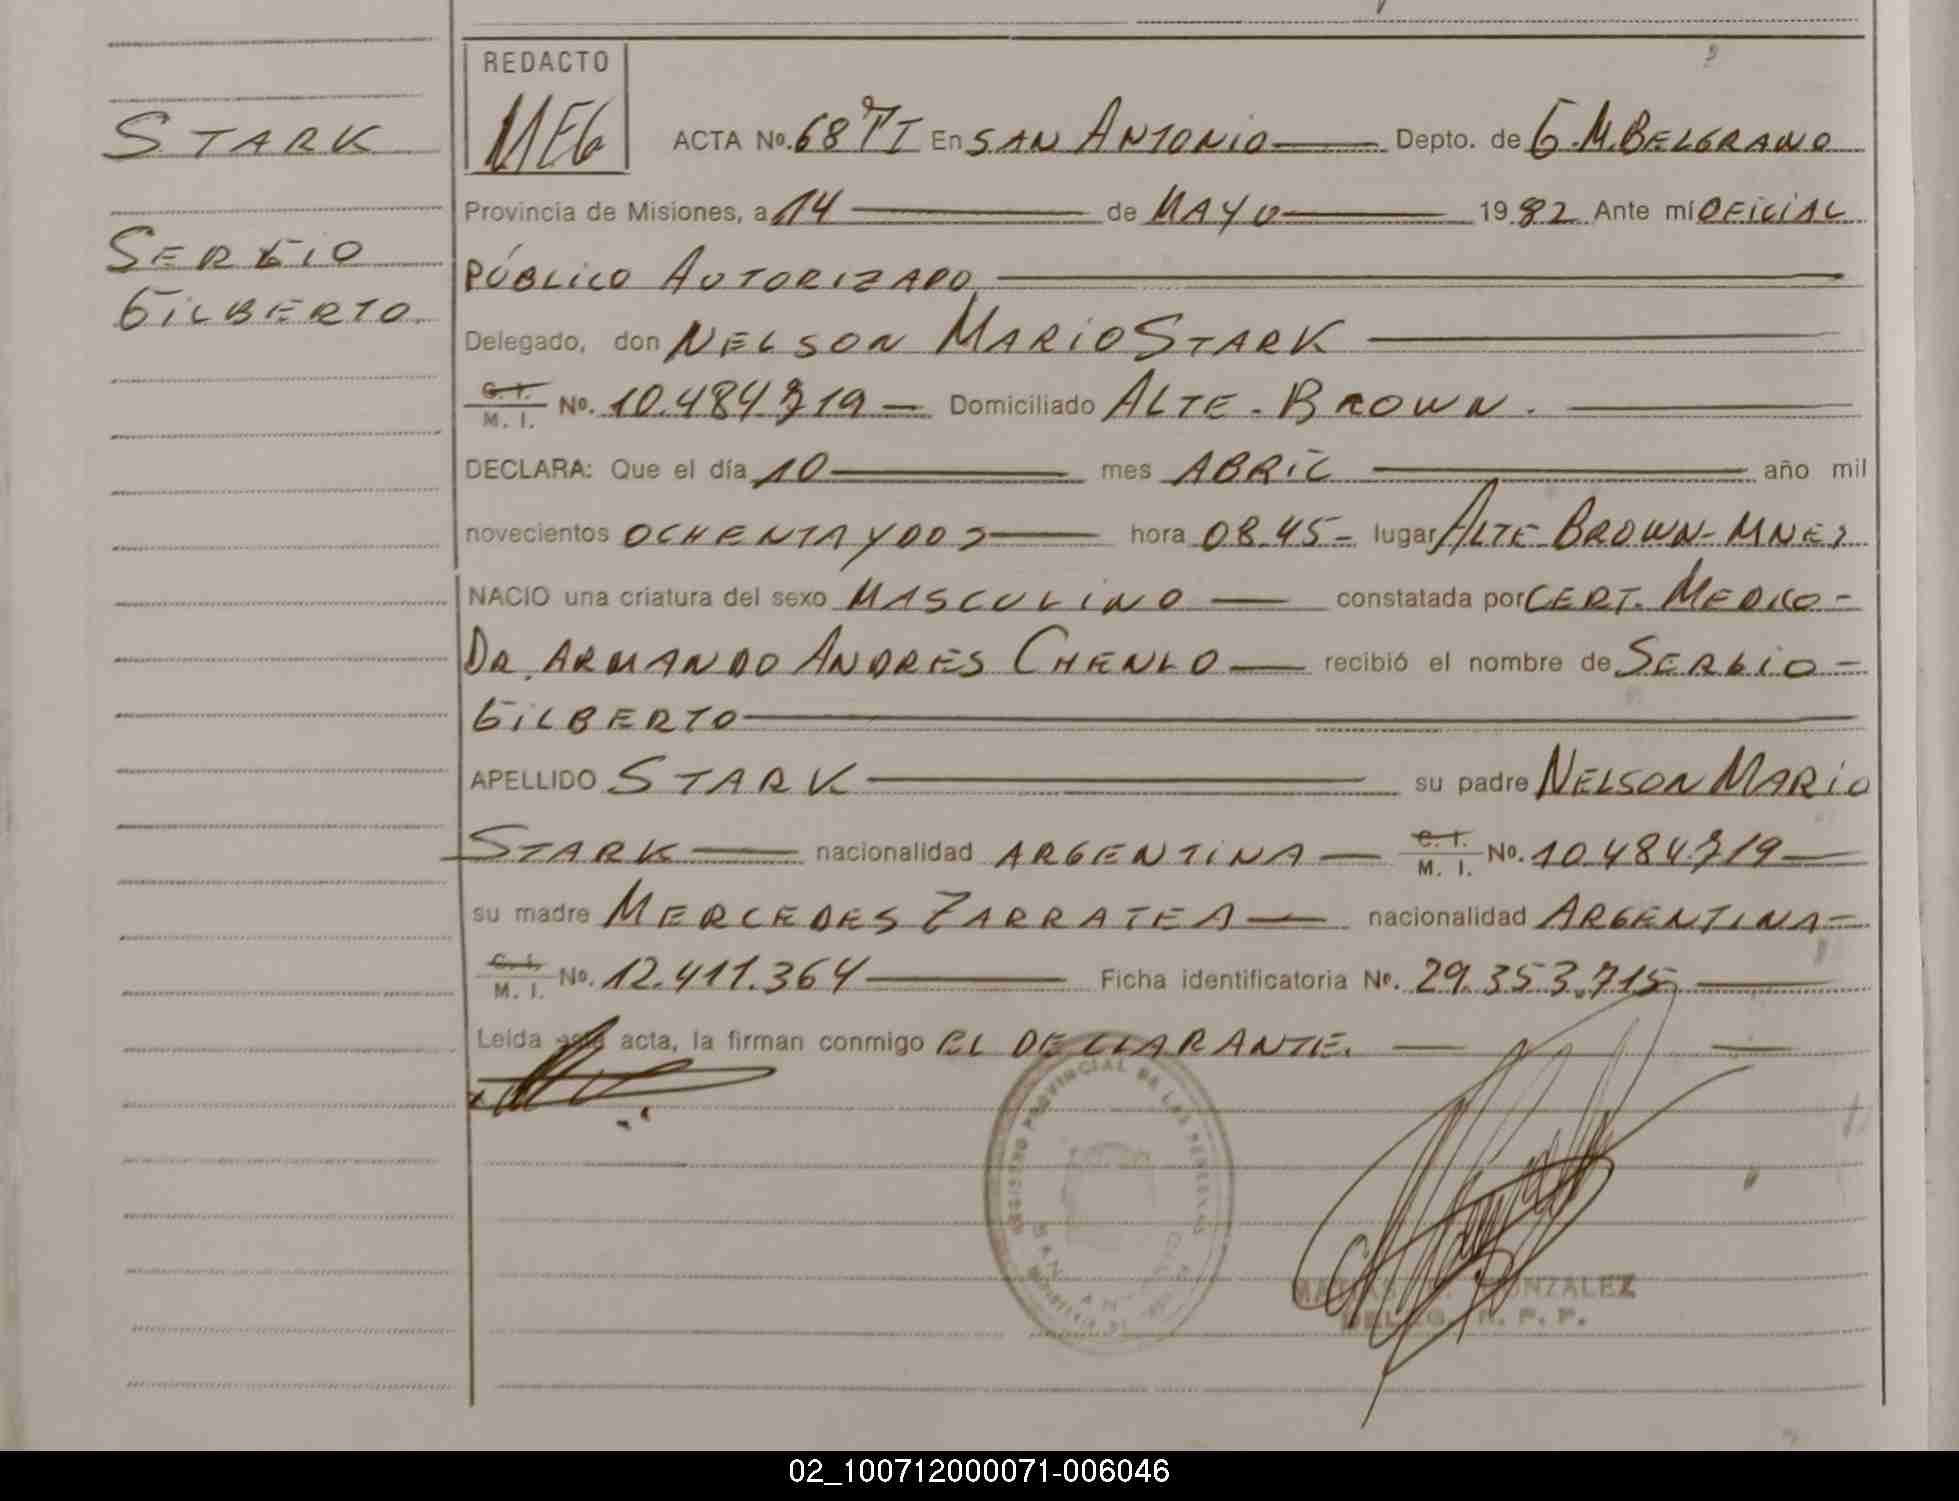 STARK
SERGIO
GILBERTO.
REDACTO
MEG
ACTA Nº. 68 TI En SAN ANTONIO Depto. de G.M.BELGRANO
Provincia de Misiones, a 14 de MAYO 1982 Ante mí OFICIAL
PÚBLICO AUTORIZADO
Delegado, don NELSON MARIO STARK
C. I. M. I. Nº. 10.484.719 — Domiciliado ALTE. BROWN.
DECLARA: Que el día 10 mes ABRIL año mil
novecientos OCHENTA Y DOS hora 08.45 - lugar ALTE BROWN - MNES
NACIO una criatura del sexo MASCULINO — constatada por CERT. MEDICO -
DR. ARMANDO ANDRES CHENLO — recibió el nombre de SERGIO -
GILBERTO
APELLIDO STARK su padre NELSON MARIO
STARK — nacionalidad ARGENTINA — C. I. M. I. Nº. 10.484.719 —
su madre MERCEDES ZARRATEA — nacionalidad ARGENTINA -
C. I. M. I. Nº. 12.411.364 Ficha identificatoria Nº. 29.353.715
Leída esta acta, la firman conmigo EL DECLARANTE.
REGISTRO PROVINCIAL DE LAS PERSONAS
SAN
GONZALEZ
DELEG. R. P. P.
02_100712000071-006046